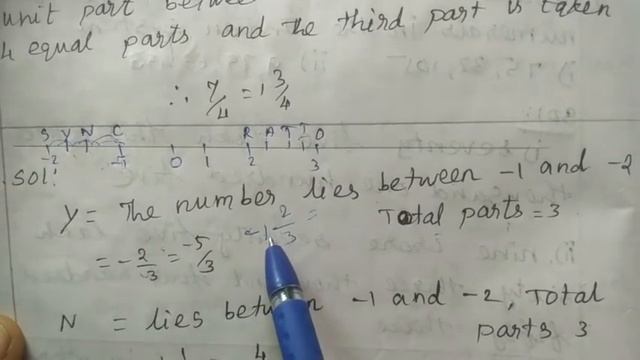 unit part between
4 equal parts and the third part is taken
∴ 7/4 = 1 3/4
S Y N C R A T T O
-2 -1 0 1 2 3
Sol:
Y = The number lies between -1 and -2
-1 2/3 = Total parts = 3
= -2/3 = -5/3
N = lies between -1 and -2, Total
parts 3